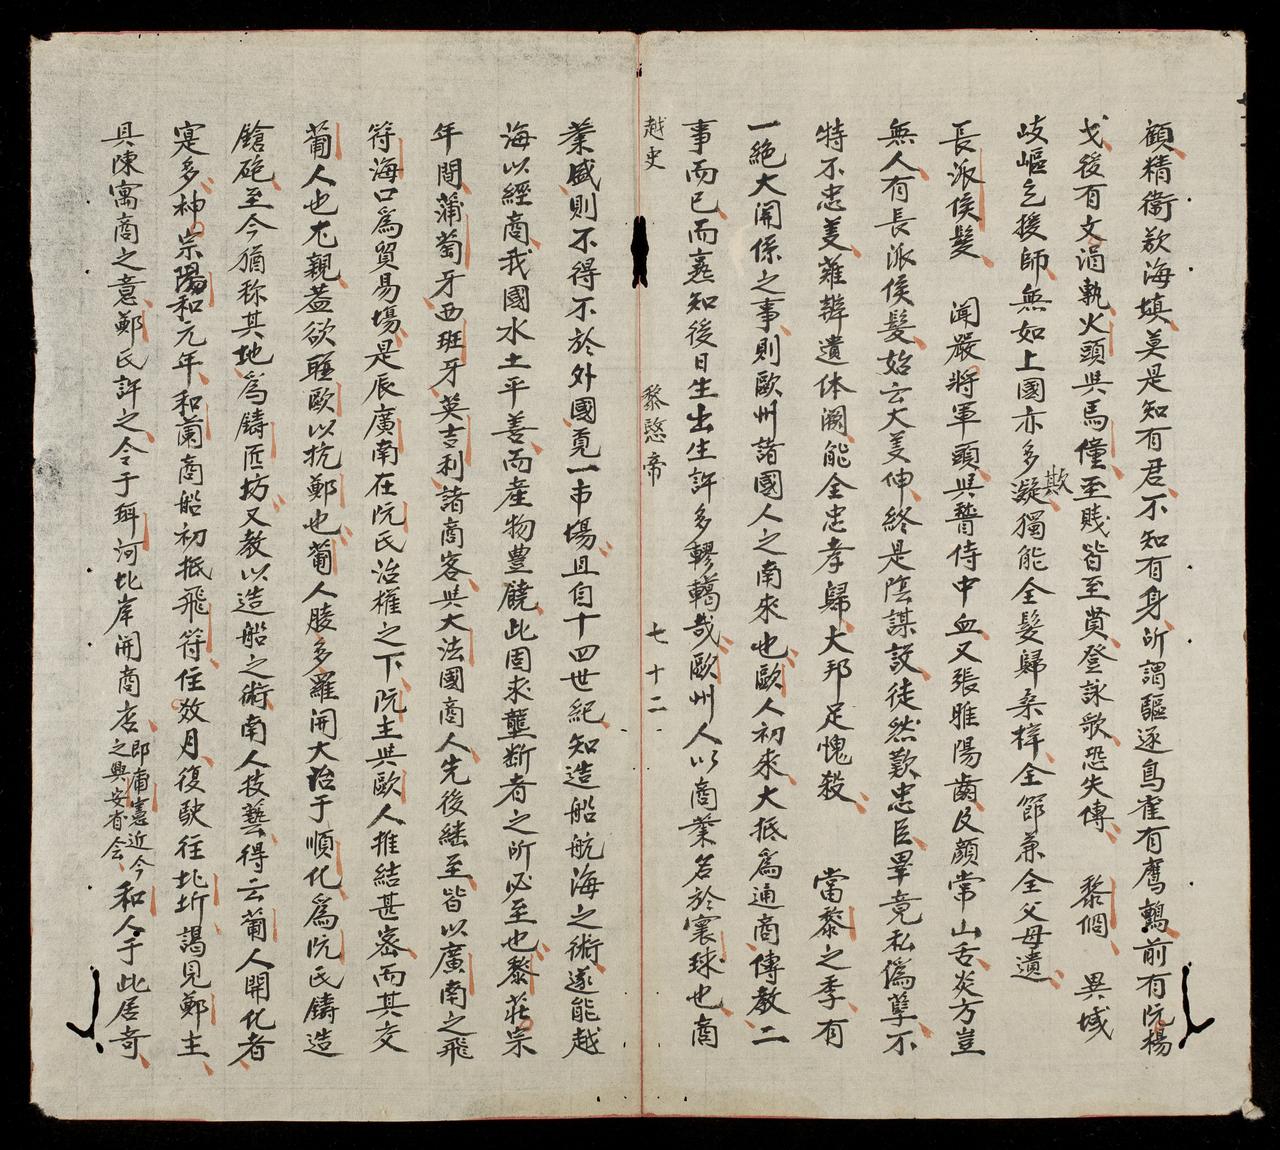 顧精衞歃海填莫是知有君不知有身所謂驅逐鳥雀有鷹鸇前有阮楊
戈後有文涓執火頭與馬僮至賤皆至貲登詠歌恐失傳　黎倜　異域
岐嶇乞援師無如上國亦多凝欺獨能全髮歸桑梓全節兼全父母遺
長派侯髮　聞嚴將軍頭與嵇侍中血又張雎陽齒及顏常山舌炎方豈
無人有長派侯髮始云大羙伸終是陰謀設徒然歎忠臣畢竟私僞孽不
特不忠羙薙辮遺体闕能全忠孝歸大邦足愧殺　當黎之季有
一絶大関係之事則歐州諸國人之南來也歐人初來大抵爲通商傳教二
事而已而意知後日生出生許多轇轕哉歐州人以商業名於寰球也商
越史　黎愍帝　七十二
業盛則不得不於外國覓一市場且自十四世紀知造船航海之術遂能越
海以經商我國水土平善而産物豊饒此固求壟断者之所必至也黎莊宗
年間蒲萄牙西班牙英吉利諸商客與大法國商人先後継至皆以廣南之飛
符海口爲貿易場是辰廣南在阮氏治權之下阮主與歐人推結甚密而其交
葡人也尤親蓋欲聯歐以抗鄭也葡人膮多羅開大冶于順化爲阮氏鑄造
鎗砲至今猶称其地爲鑄匠坊又教以造船之術南人技藝得云葡人開化者
寔多神宗陽和元年和蘭商船初抵飛符住效月復駛往北圻謁見鄭主
具陳寓商之意鄭氏許之令于珥河北岸開商店即甫憲近今之興安省会和人于此居奇